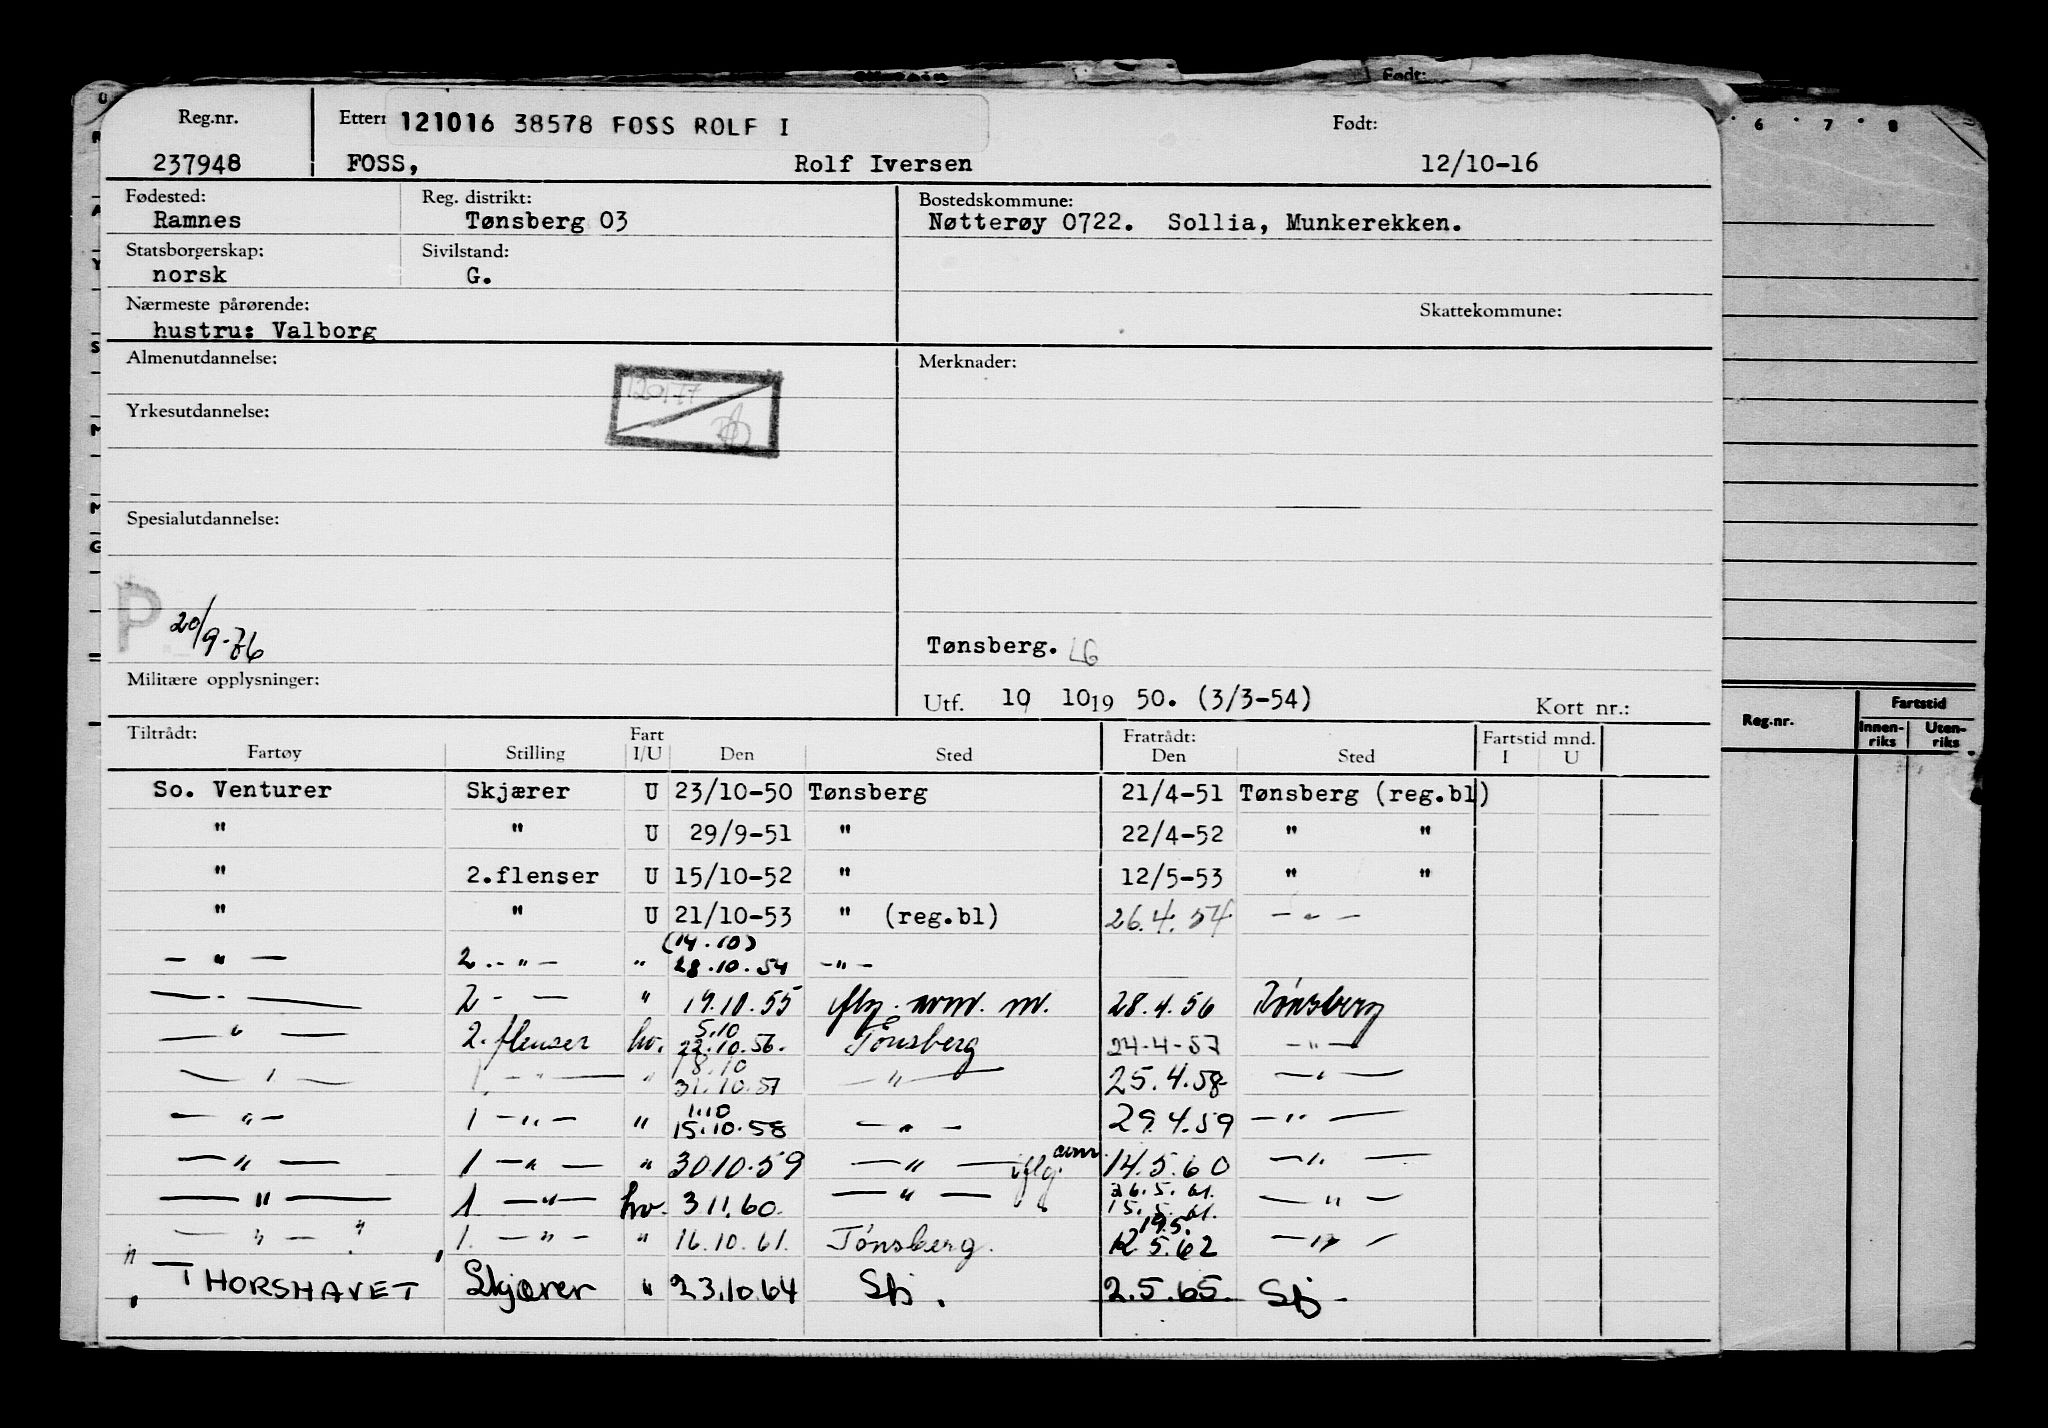 Født:
Reg.nr. Ettern 121016 38578 FOSS ROLF I Født:
237948 FOSS, Rolf Iversen 12/10-16
Fødested: Reg. distrikt: Bostedskommune:
Ramnes Tønsberg 03 Nøtterøy 0722. Sollia, Munkerekken.
Statsborgerskap: Sivilstand:
norsk G.
Nærmeste pårørende: Skattekommune:
hustru: Valborg
Almenutdannelse: Merknader:
Yrkesutdannelse:
Spesialutdannelse:
P 20/9-76
Tønsberg. LG
Militære opplysninger:
Utf. 10 10 19 50. (3/3-54) Kort nr.:
Tiltrådt: Fart Fratrådt: Fartstid mnd.
Fartøy Stilling I/U Den Sted Den Sted I U
So. Venturer Skjærer U 23/10-50 Tønsberg 21/4-51 Tønsberg (reg.bl)
" " U 29/9-51 " 22/4-52 " "
" 2.flenser U 15/10-52 " 12/5-53 " "
" " U 21/10-53 " (reg.bl) 26.4.54 - " -
(14.10)
- " - 2.- " - " 28.10.54 - " -
- " - 2 - - " 19.10.55 28.4.56 Tønsberg
5.10
- " - 2. flenser hv. 22.10.56. Tønsberg 24-4-57 - " -
18.10
- " - 1. - " - " 31.10.57 - " - 25.4.58 - " -
1.10
- " - 1 - " - " 15.10.58 - " - 29.4.59 - " -
- " - 1 - " - " 30 10.59 - " - 14.5.60 - " -
26.5.61.
- " - 1. - " - hv. 3 11.60. - " - 15.5.61. - " -
19.5.
- " - " 1. - " - " 16.10.61. Tønsberg. 12 5.62 - " -
THORSHAVET Skjærer " 23.10.64 Sbj. 2.5.65. Sbj-
6 7 8
Reg.nr. Fartstid
Innen-riks Uten-riks